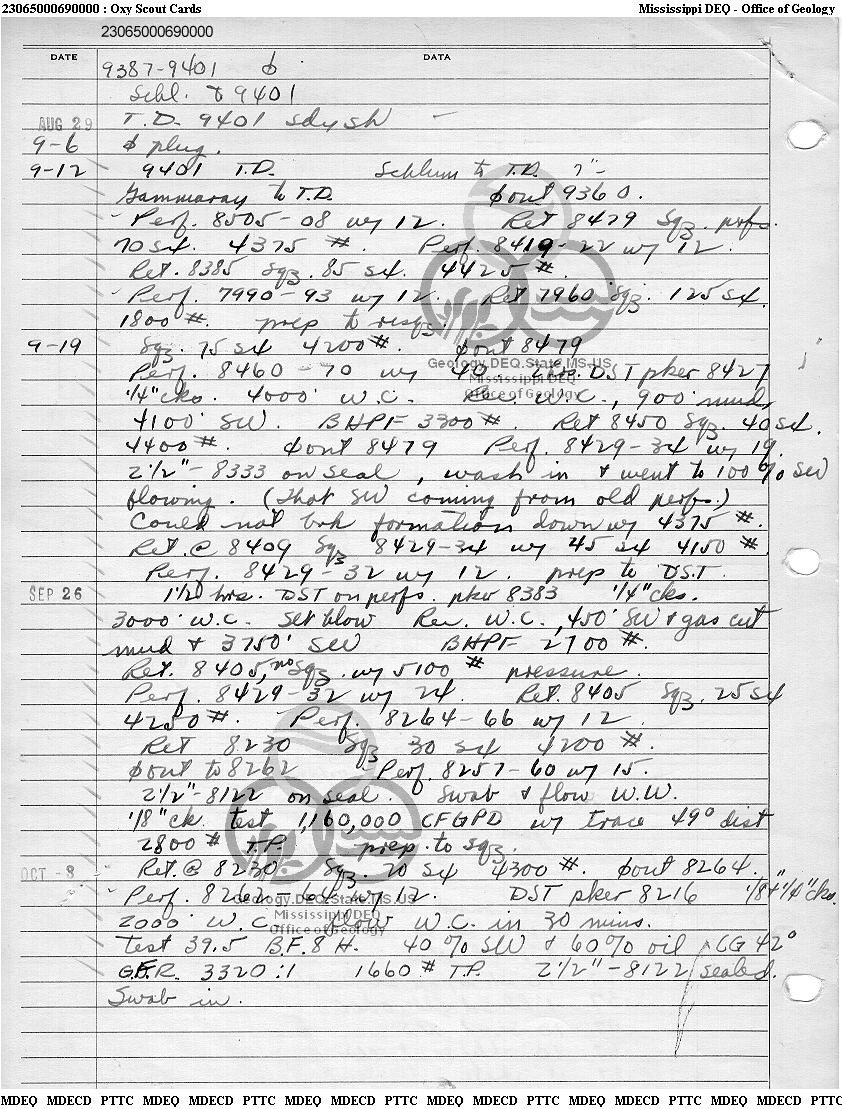 23065000690000 : Oxy Scout Cards Mississippi DEQ - Office of Geology
23065000690000
DATE DATA
9387-9401 ϕ
Schl. & 9401
AUG 29 T.D. 9401 sdysh -
9-6 ϕ plug.
9-12 9401 T.D. Schlum to T.D. 7"-
Gammaray to T.D. ϕout 9360.
Perf. 8505-08 w/ 12. Ret 8479 Sqz. perfs.
70 sx. 4375 #. Perf. 8419-22 w/ 12.
Ret. 8385 Sqz. 85 sx. 4425 #.
Perf. 7990-93 w/ 12. Ret 7960 Sqz. 125 sx.
1800 #. prep to resqz.
9-19 Sqz. 75 sx 4200 #. ϕout 8479
Geology.DEQ.State.MS.US
Perf. 8460-70 w/ 40 DST pker 8427
Mississippi DEQ
1/4" cks. 4000' W.C. Rec. W.C., 900' mud,
Office of Geology
4100' SW. BHPF 3300 #. Ret 8450 Sqz. 40 sx.
4400 #. ϕout 8479 Perf. 8429-34 w/ 19.
2 1/2" - 8333 on seal, wash in & went to 100% SW
flowing. (That SW coming from old perfs.)
Could not brk formation down w/ 4375 #.
Ret. @ 8409 Sqz 8429-34 w/ 45 sx 4150 #
Perf. 8429-32 w/ 12. prep to DST.
SEP 26 1 1/2 hrs. DST on perfs. pker 8383 1/4" cks.
3000' W.C. Sli blow Rec. W.C., 450' SW & gas cut
mud & 3750' SW BHPF 2700 #.
Ret. 8405, no Sqz. w/ 5100 # pressure.
Perf. 8429-32 w/ 24. Ret. 8405 Sqz. 25 sx
4250 #. Perf. 8264-66 w/ 12.
Ret 8230 Sqz 30 sx 4200 #.
ϕout to 8262 Perf. 8257-60 w/ 15.
2 1/2" - 8122 on seal. Swab & flow W.W.
1/8" ck. test 1,160,000 CFGPD w/ trace 49° dist
2800 # T.P. prep. to sqz.
OCT -3 Ret. @ 8230 Sqz. 20 sx 4300 #. ϕout 8264.
Perf. 8262-64 w/ 12. DST pker 8216 1/8 & 1/4" cks.
Geology.DEQ.State.MS.US
Mississippi DEQ
2000' W.C. flow W.C. in 30 mins.
Office of Geology
test 39.5 B.F. 8 H. 40% SW & 60% oil, CG 42°
G.F.R. 3320:1 1660 # T.P. 2 1/2" - 8122 sealed.
Swab in.
MDEQ MDECD PTTC MDEQ MDECD PTTC MDEQ MDECD PTTC MDEQ MDECD PTTC MDEQ MDECD PTTC MDEQ MDECD PTTC